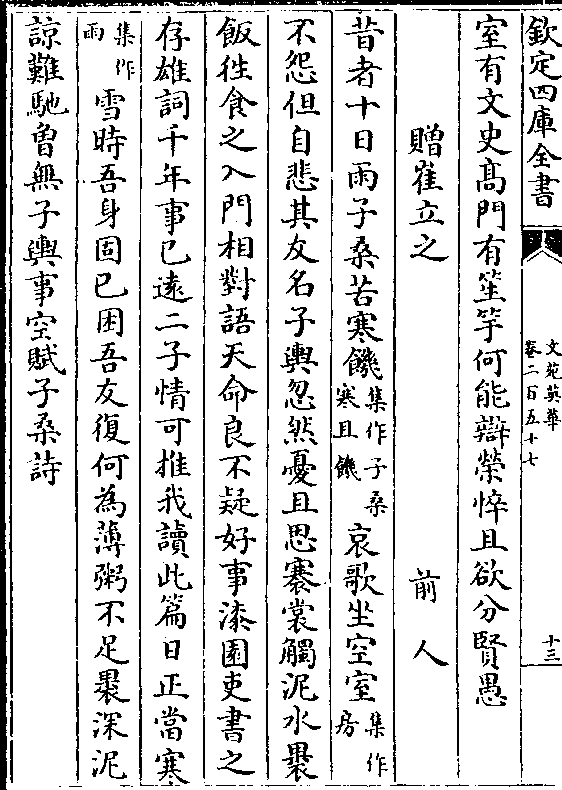 欽定四庫全書
文苑英華
卷二百五十七
十三
室有文史髙門有笙竽何能辯榮悴且欲分賢愚
贈崔立之
前人
昔者十日雨子桑苦寒饑集作子桑寒且饑哀歌坐空室集作房
不怨但自悲其友名子輿忽然憂且思褰裳觸泥水褁
飯徃食之入門相對語天命良不疑好事漆園吏書之
存雄詞千年事已遠二子情可推我讀此篇日正當寒
集作雨雪時吾身固已困吾友復何為薄粥不足褁深泥
諒難馳曽無子輿事空賦子桑詩